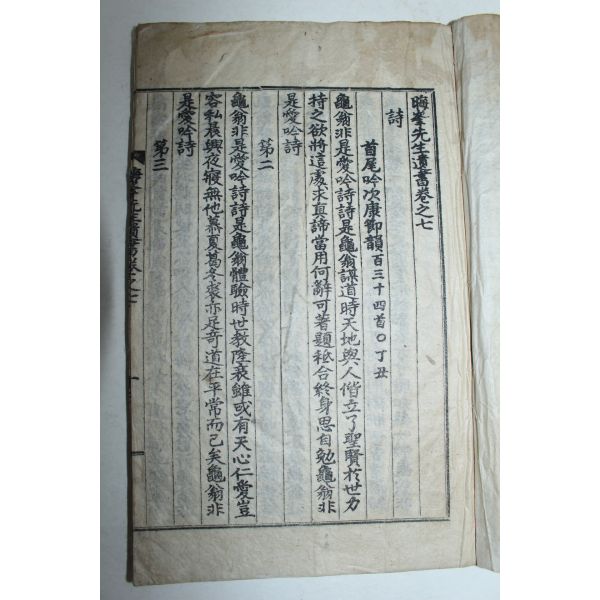 晦峯先生遺書卷之七
詩
首尾吟次康節韻百三十四首○丁丑
龜翁非是愛吟詩詩是龜翁謀道時天地與人偕立了聖賢於世力
持之欲將這處求真諦當用何辭可著題秘合終身思自勉龜翁非
是愛吟詩
第二
龜翁非是愛吟詩詩是龜翁體驗時世教陸衰雖或有天心仁愛豈
容私晨興夜寢無他慕夏葛冬裘亦是奇道在平常而已矣龜翁非
是愛吟詩
第三
晦峯先生遺書卷之七